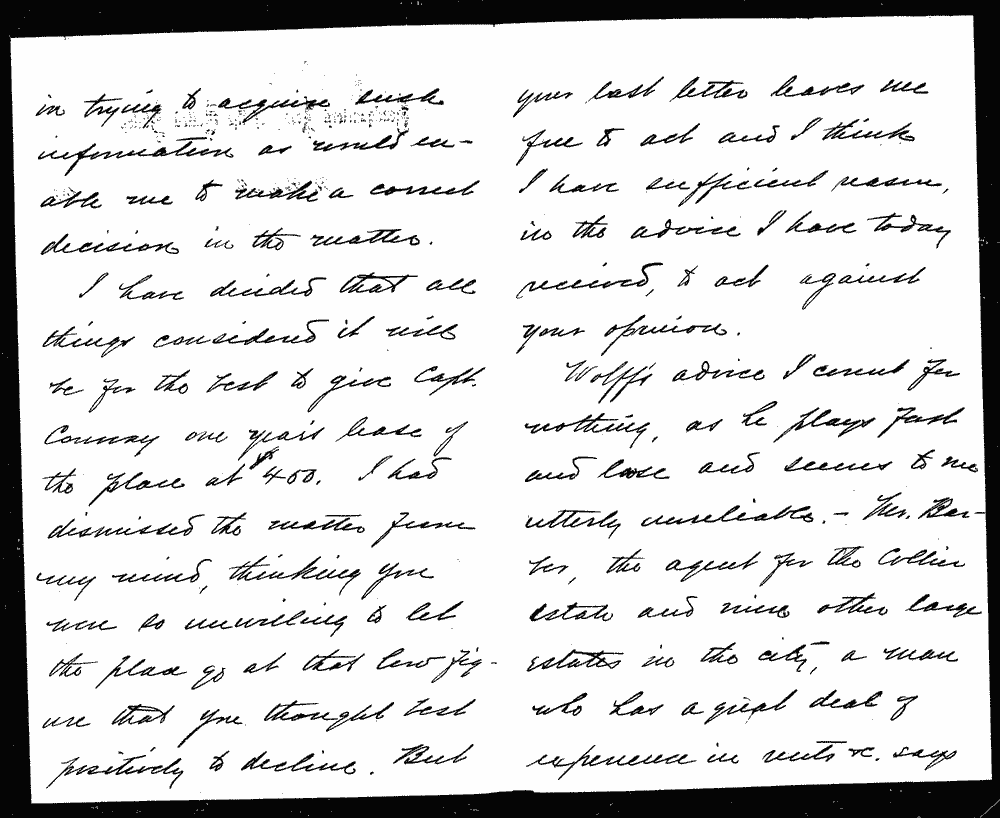 in trying to acquire such
information as would en-
able me to make a correct
decision in the matter.
I have decided that all
things considered it will
be for the best to give Capt.
Conway one year's lease of
the place at $450. I had
dismissed the matter from
my mind, thinking you
were so unwilling to let
the place go at that low fig-
ure that you thought best
positively to decline. But
your last letter leaves me
free to act and I think
I have sufficient reason,
in the advice I have today
received, to act against
your opinion.
Wolff's advice I count for
nothing, as he plays fast
and loose and seems to me
utterly unreliable. - Mr. Bar-
ber, the agent for the Collier
estate and nine other large
estates in the city, a man
who has a great deal of
experience in rents &c. says